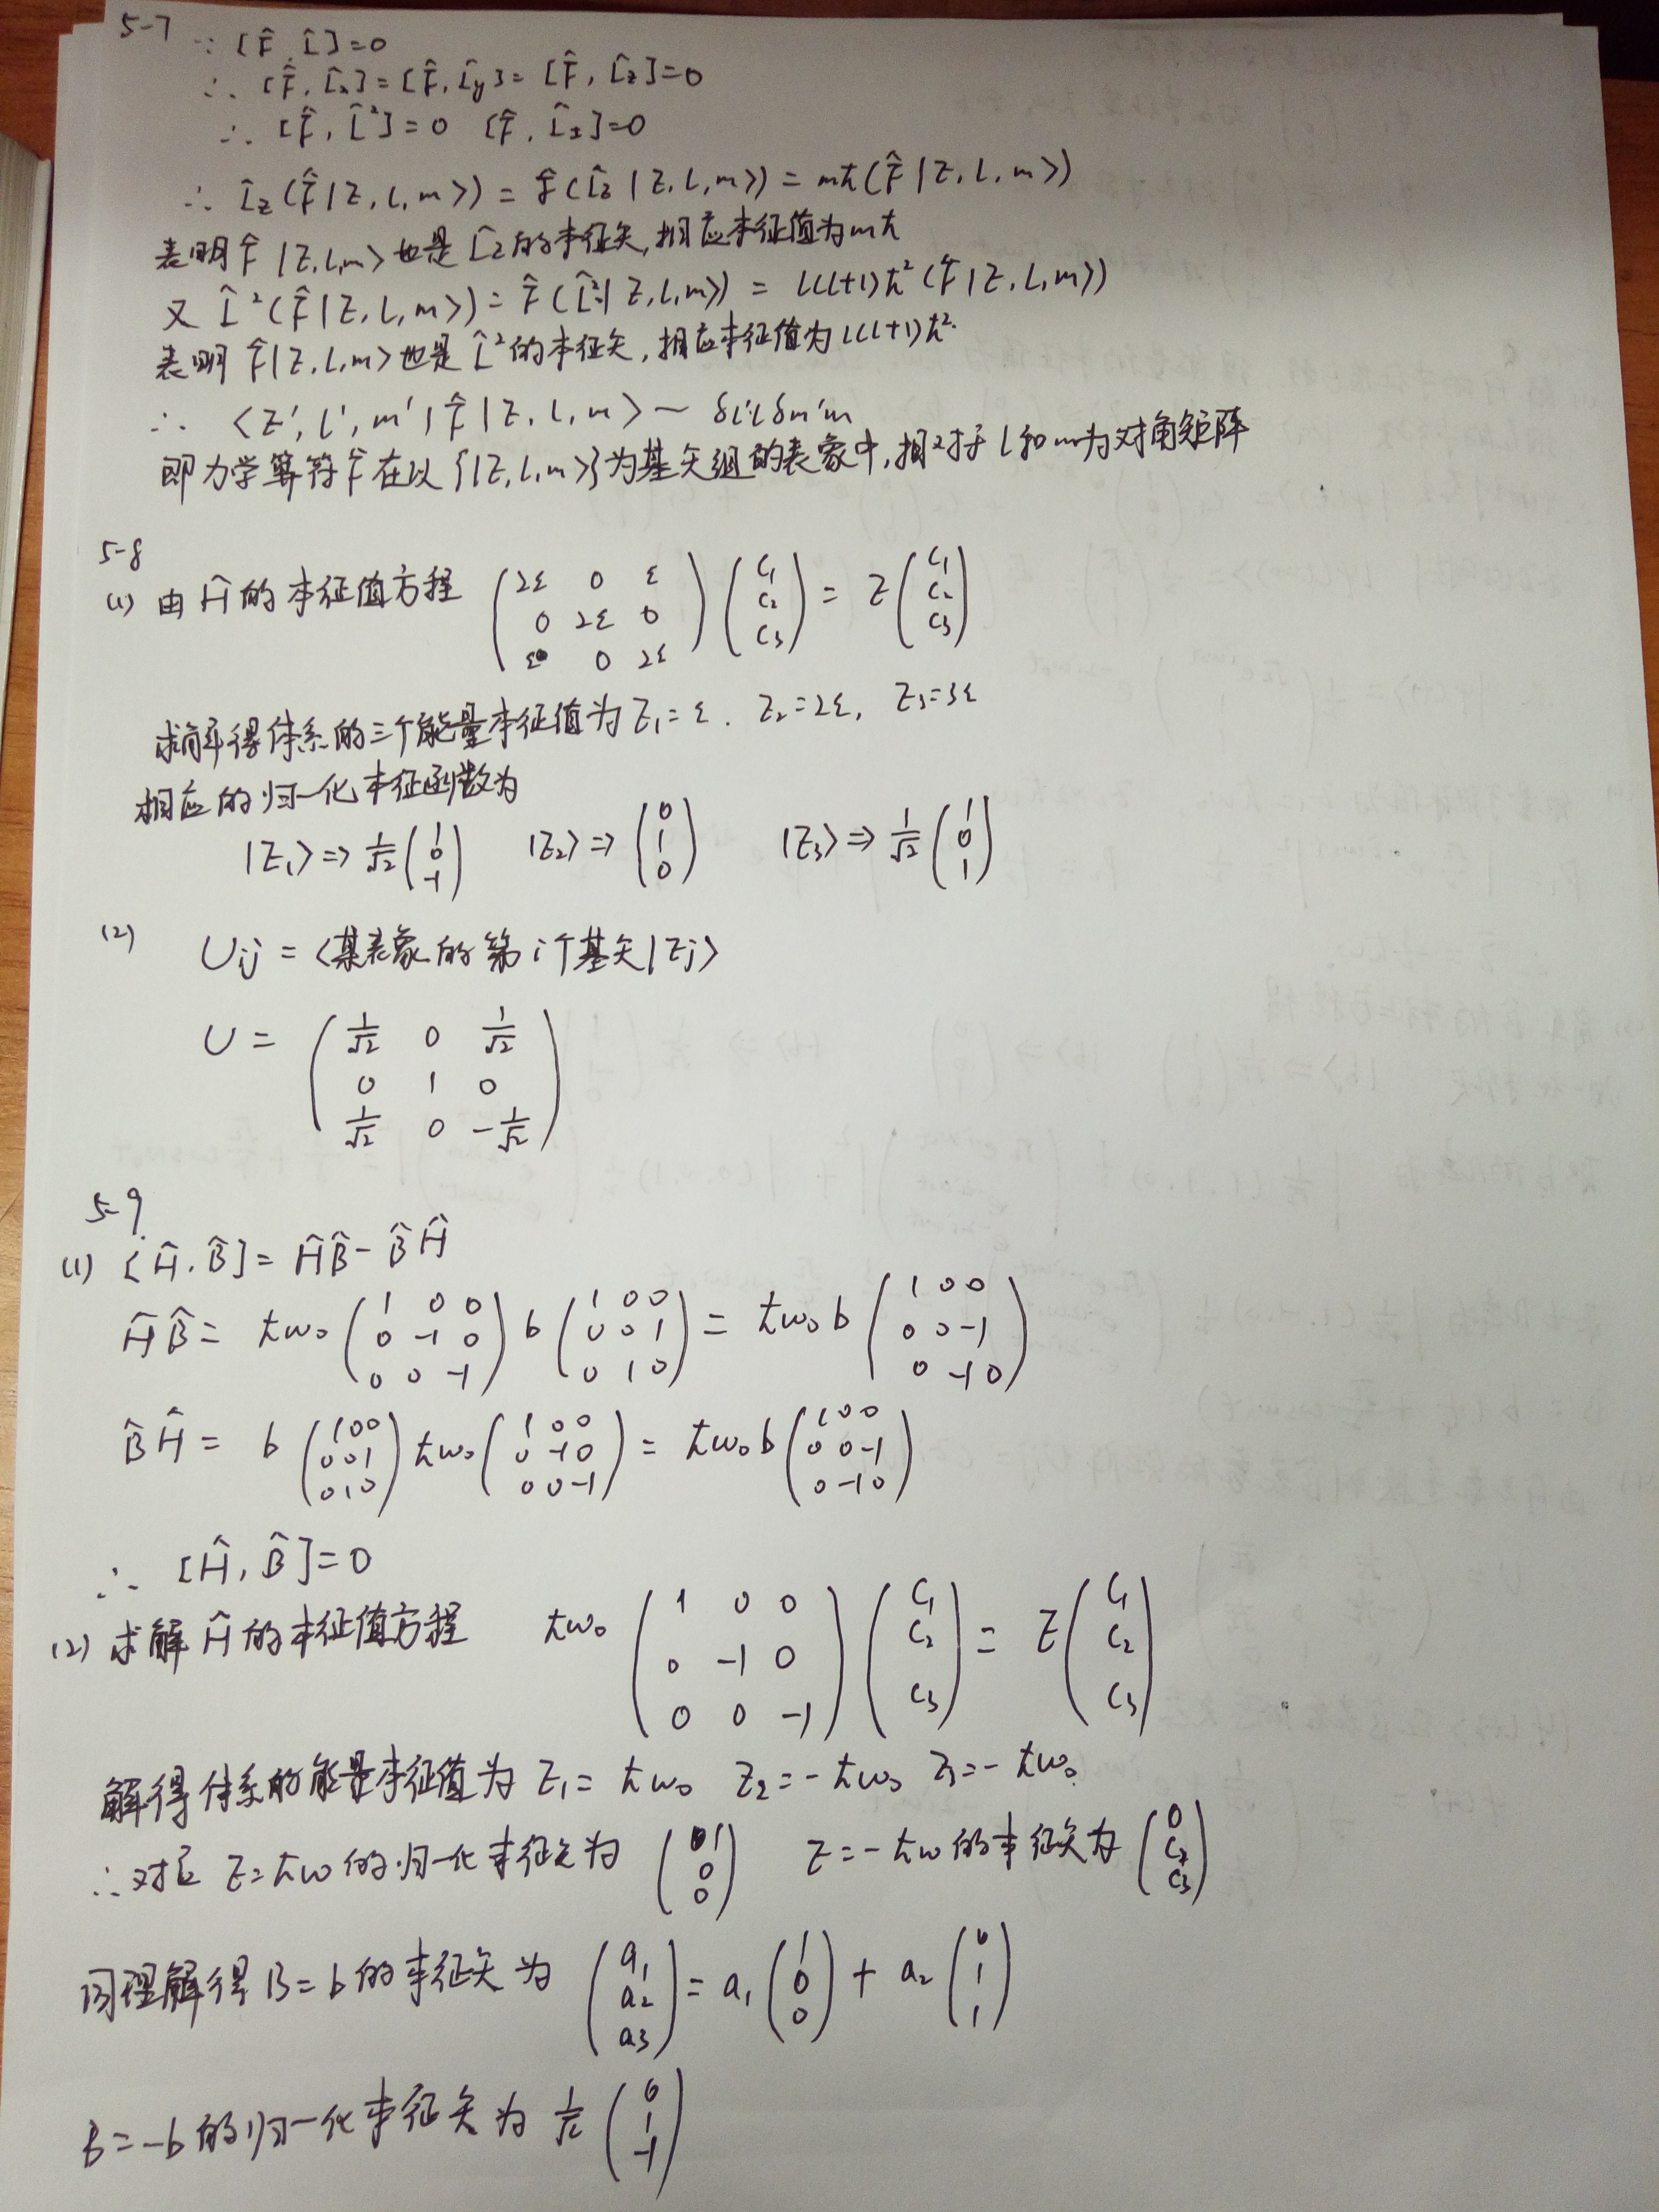 5-7 ∵ [F̂, L̂]=0
∴ [F̂, L̂x]=[F̂, L̂y]=[F̂, L̂z]=0
∴ [F̂, L̂²]=0 [F̂, L̂z]=0
∴ L̂z(F̂|E,l,m〉)=F̂(L̂z|E,l,m〉)=mħ(F̂|E,l,m〉)
表明F̂|E,l,m〉也是L̂z的本征矢,相应本征值为mħ
又 L̂²(F̂|E,l,m〉)=F̂(L̂²|E,l,m〉)=l(l+1)ħ²(F̂|E,l,m〉)
表明F̂|E,l,m〉也是L̂²的本征矢,相应本征值为l(l+1)ħ².
∴ 〈E',l',m'|F̂|E,l,m〉~δl'lδm'm
即力学算符F̂在以{|E,l,m〉}为基矢组的表象中,相对于l和m为对角矩阵
5-8
(1) 由Ĥ的本征值方程 (2ε 0 ε; 0 2ε 0; ε 0 2ε)(C1; C2; C3)=E(C1; C2; C3)
求解得体系的三个能量本征值为E1=ε. E2=2ε, E3=3ε
相应的归一化本征函数为
|E1〉⇒1/√2(1; 0; -1) |E2〉⇒(0; 1; 0) |E3〉⇒1/√2(1; 0; 1)
(2) Uij=〈某表象的第i个基矢|Ej〉
U=(1/√2 0 1/√2; 0 1 0; 1/√2 0 -1/√2)
5-9
(1) [Ĥ,B̂]=ĤB̂-B̂Ĥ
ĤB̂=ħω0(1 0 0; 0 -1 0; 0 0 -1)b(1 0 0; 0 0 1; 0 1 0)=ħω0b(1 0 0; 0 0 -1; 0 -1 0)
B̂Ĥ=b(1 0 0; 0 0 1; 0 1 0)ħω0(1 0 0; 0 -1 0; 0 0 -1)=ħω0b(1 0 0; 0 0 -1; 0 -1 0)
∴ [Ĥ,B̂]=0
(2) 求解Ĥ的本征值方程 ħω0(1 0 0; 0 -1 0; 0 0 -1)(C1; C2; C3)=E(C1; C2; C3)
解得体系的能量本征值为E1=ħω0 E2=-ħω0 E3=-ħω0
∴对应E=ħω的归一化本征矢为(1; 0; 0) E=-ħω的本征矢为(0; C2; C3)
同理解得B=b的本征矢为(a1; a2; a3)=a1(1; 0; 0)+a2(0; 1; 1)
B=-b的归一化本征矢为1/√2(0; 1; -1)